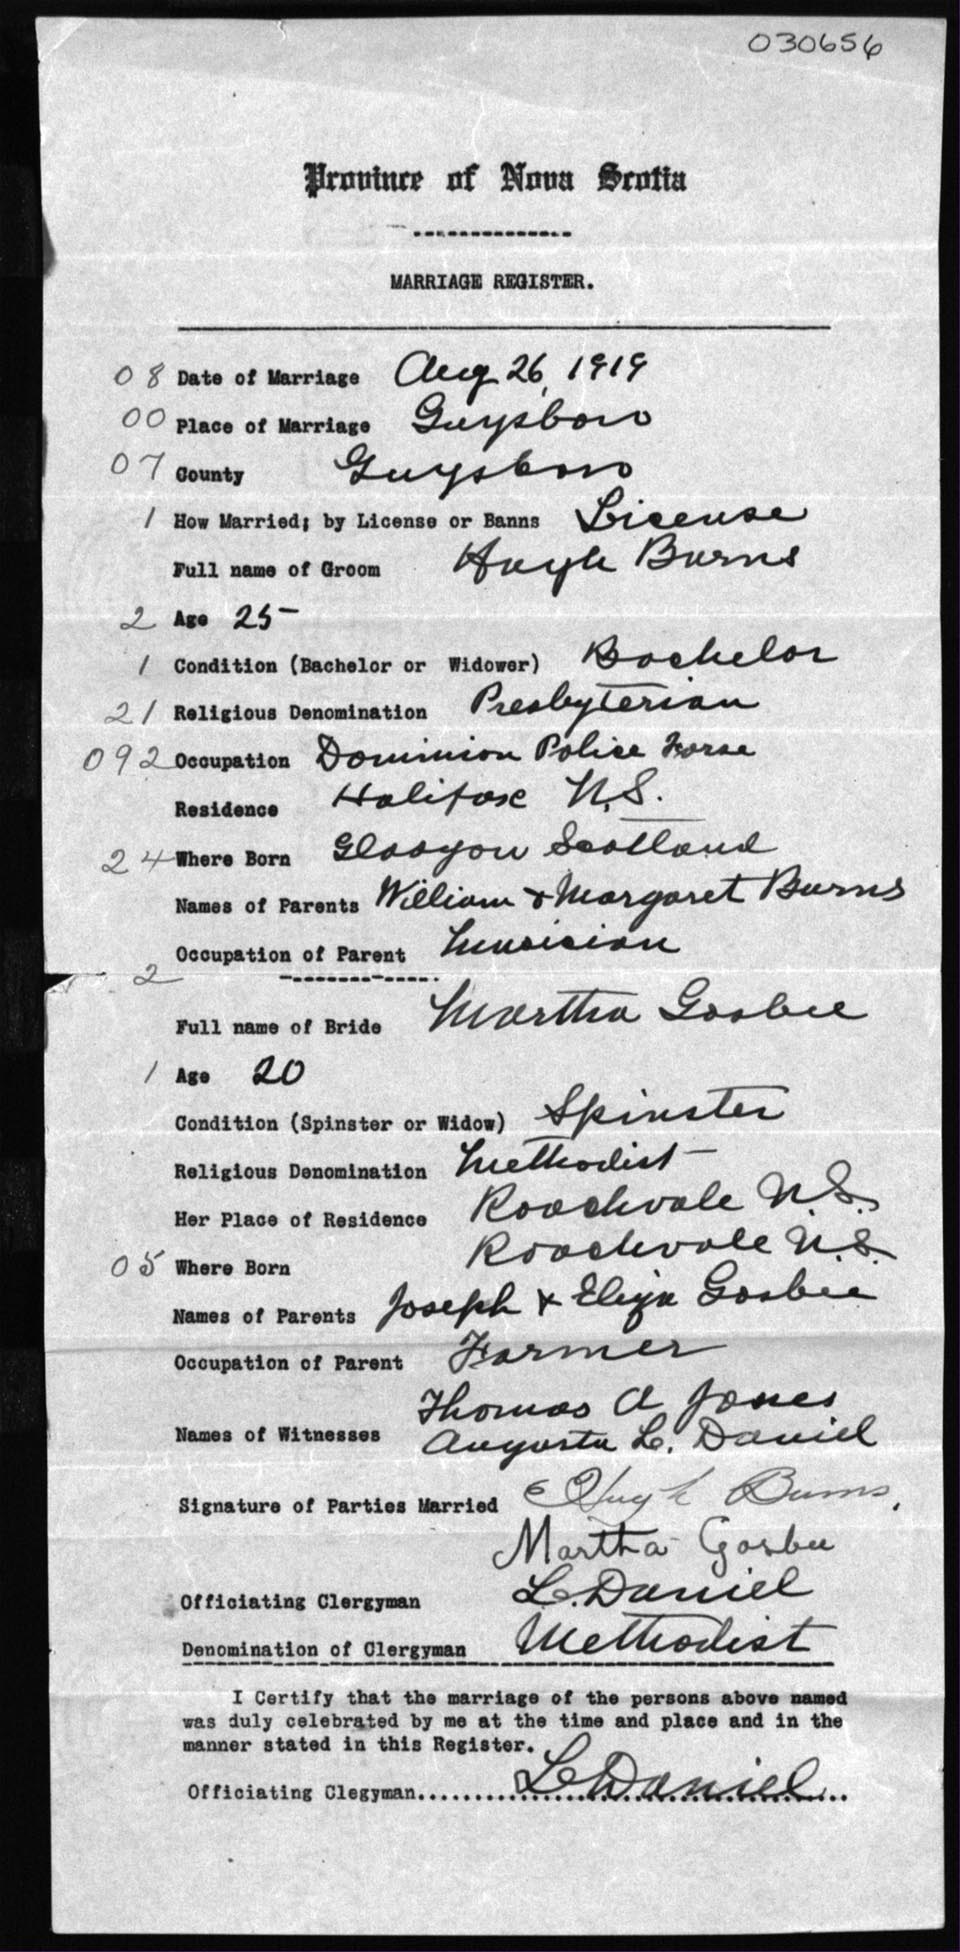 030656
Province of Nova Scotia
MARRIAGE REGISTER.
08 Date of Marriage Aug 26, 1919
00 Place of Marriage Guysboro
07 County Guysboro
1 How Married; by License or Banns License
Full name of Groom Hugh Burns
2 Age 25
1 Condition (Bachelor or Widower) Bachelor
21 Religious Denomination Presbyterian
092 Occupation Dominion Police Force
Residence Halifax N.S.
24 Where Born Glasgow Scotland
Names of Parents William & Margaret Burns
Occupation of Parent Musician
2
Full name of Bride Martha Gosbee
1 Age 20
Condition (Spinster or Widow) Spinster
Religious Denomination Methodist
Her Place of Residence Roachvale N.S.
05 Where Born Roachvale N.S.
Names of Parents Joseph & Eliza Gosbee
Occupation of Parent Farmer
Thomas A Jones
Names of Witnesses Augusta L. Daniel
Signature of Parties Married Hugh Burns.
Martha Gosbee
Officiating Clergyman L. Daniel
Denomination of Clergyman Methodist
I Certify that the marriage of the persons above named
was duly celebrated by me at the time and place and in the
manner stated in this Register.
Officiating Clegyman........L Daniel..